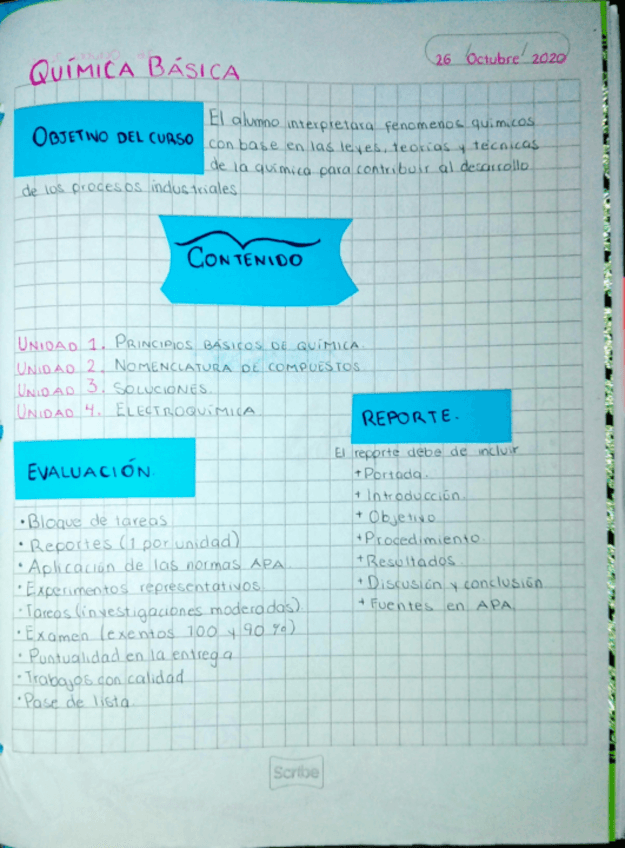 QUÍMICA BÁSICA
26 Octubre 2020
OBJETIVO DEL CURSO
El alumno interpretara fenomenos quimicos
con base en las leyes, teorias y técnicas
de la quimica para contribuir al desarrollo
de los procesos industriales
CONTENIDO
UNIDAD 1. PRINCIPIOS BÁSICOS DE QUÍMICA.
UNIDAD 2. NOMENCLATURA DE COMPUESTOS
UNIDAD 3. SOLUCIONES.
UNIDAD 4. ELECTROQUÍMICA
REPORTE.
El reporte debe de incluir
+ Portada.
+ Introducción.
+ Objetivo
+ Procedimiento.
+ Resultados
+ Discusión y conclusión
+ Fuentes en APA
EVALUACIÓN.
• Bloque de tareas
• Reportes (1 por unidad)
• Aplicación de las normas APA
• Experimentos representativos
• Tareas (investigaciones moderadas)
• Examen (exentos 100 y 90 %)
• Puntualidad en la entrega
• Trabajos con calidad
• Pase de lista
Scribe